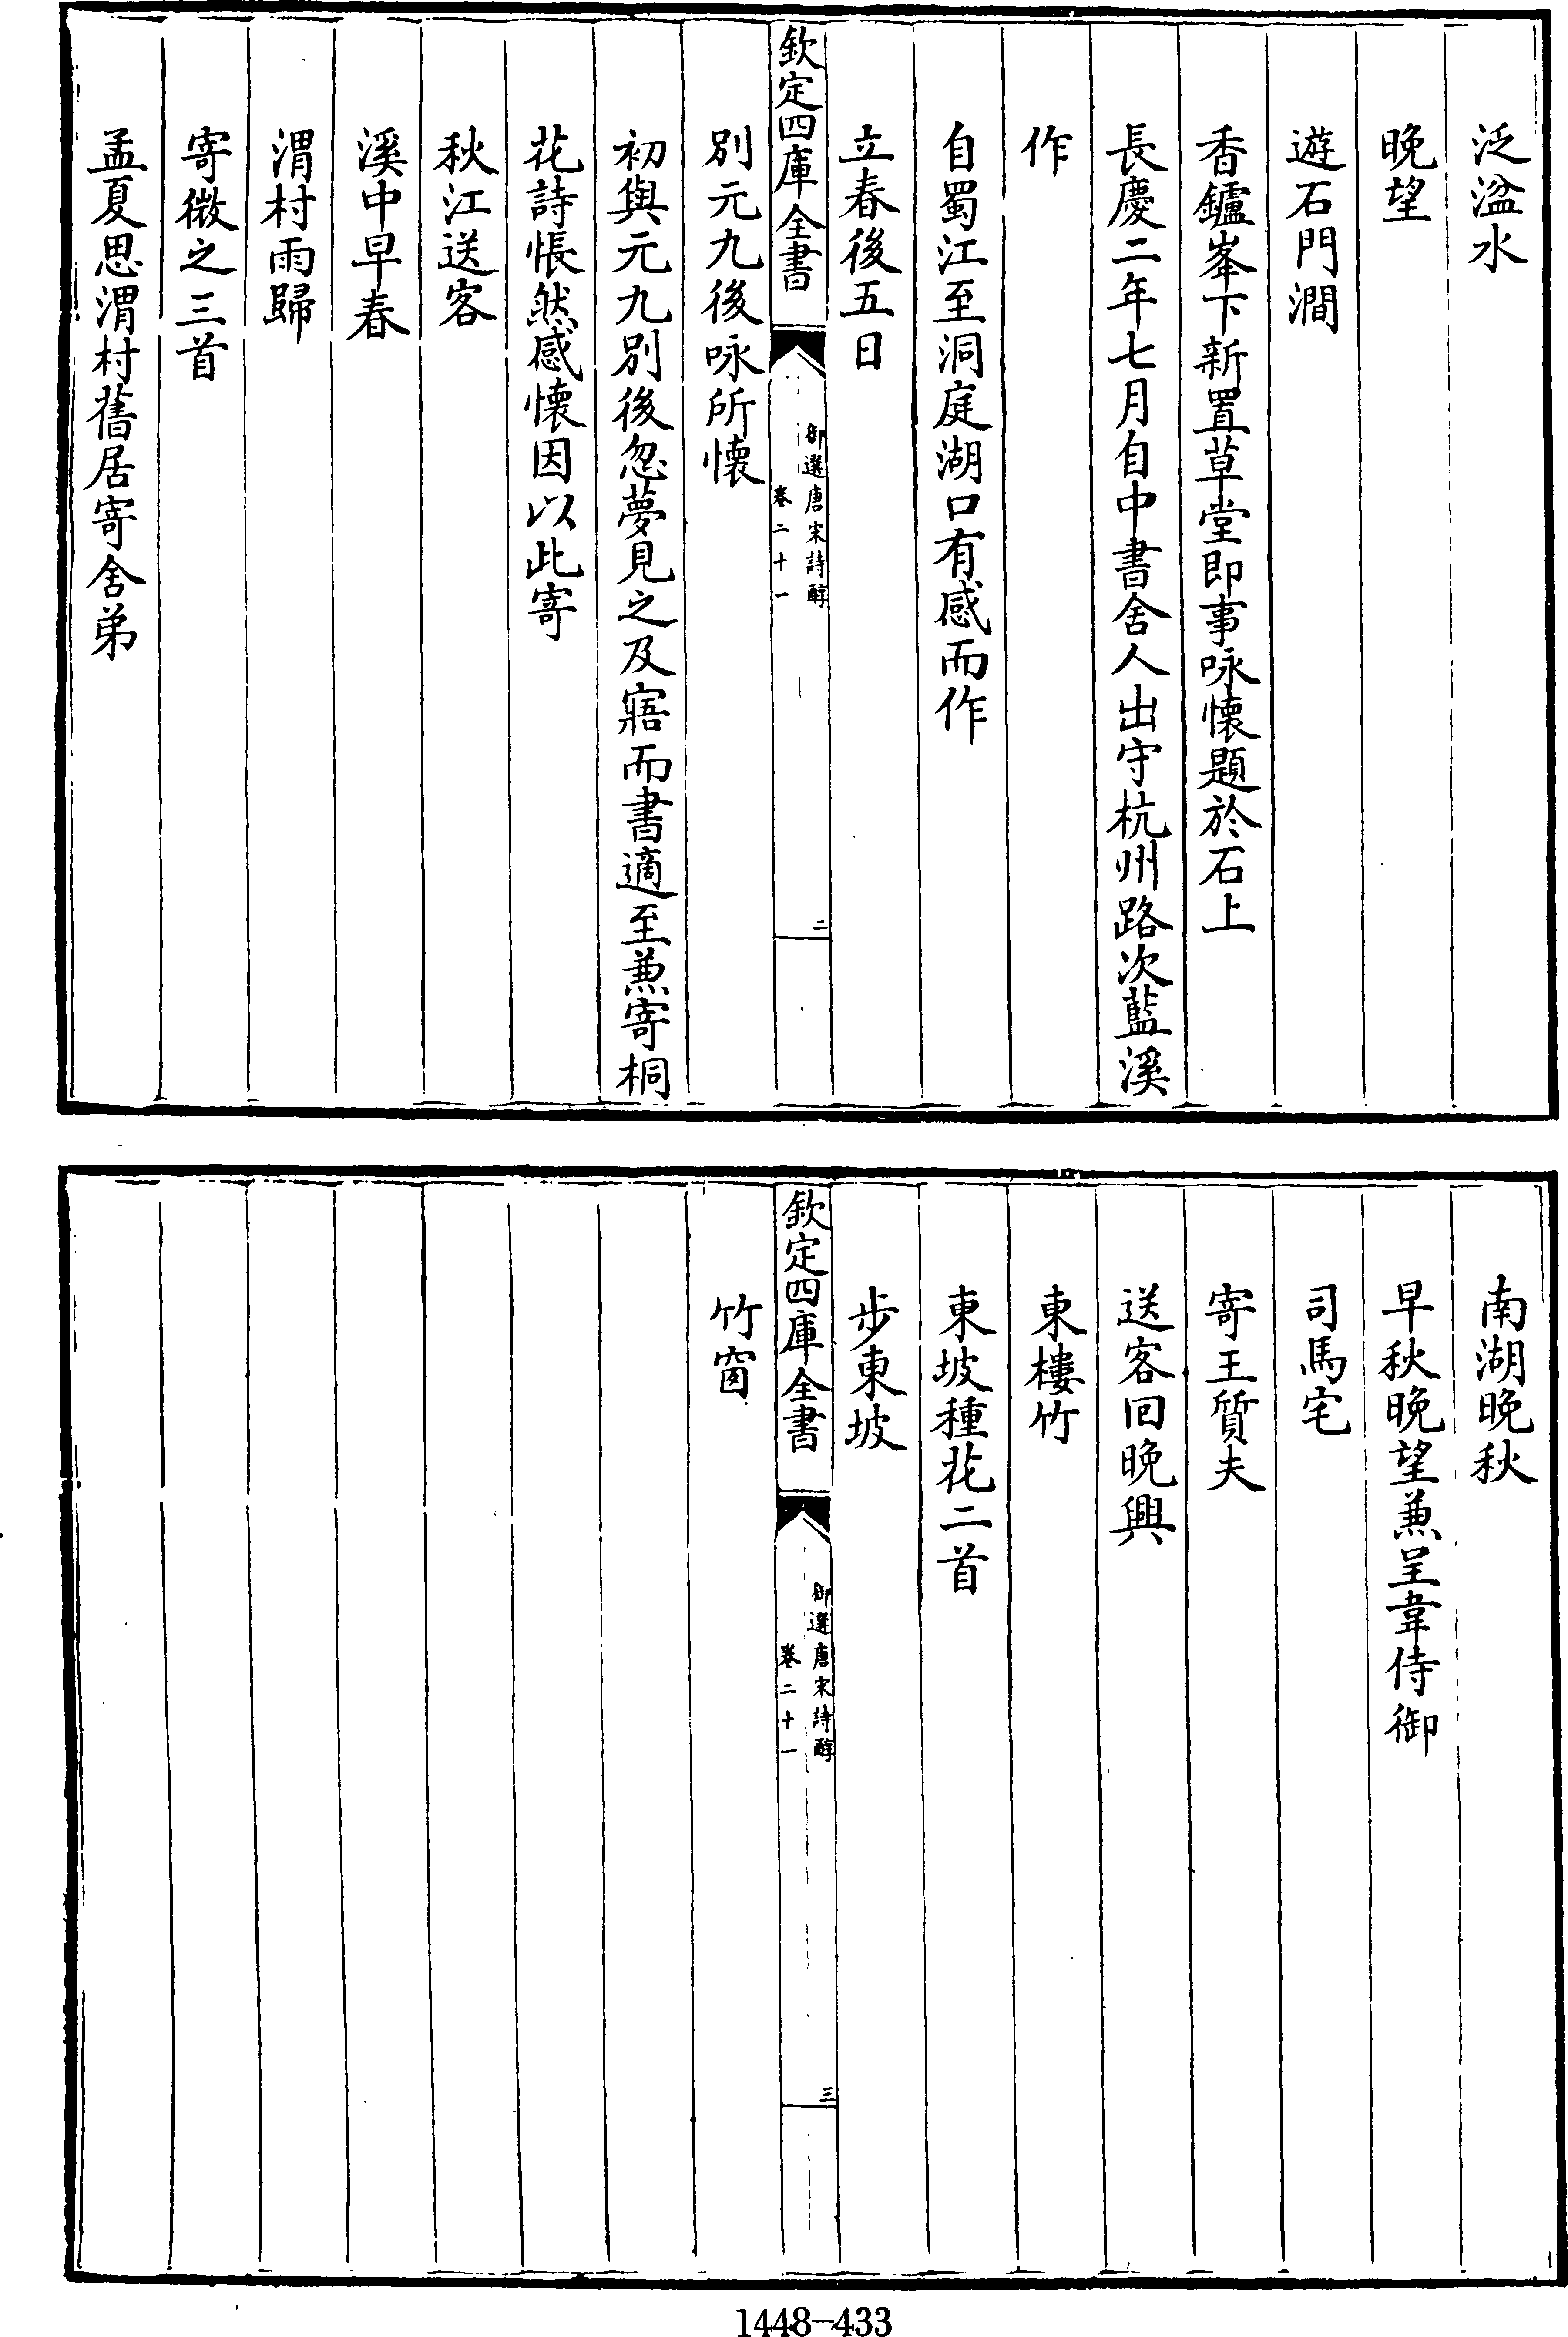 泛湓水
晚望
遊石門澗
香鑪峯下新置草堂即事咏懷題於石上
長慶二年七月自中書舍人出守杭州路次藍溪
作
自蜀江至洞庭湖口有感而作
立春後五日
欽定四庫全書
御選唐宋詩醇
卷二十一
二
別元九後咏所懷
初與元九別後忽夢見之及寤而書適至兼寄桐
花詩悵然感懷因以此寄
秋江送客
溪中早春
渭村雨歸
寄微之三首
孟夏思渭村舊居寄舍弟
南湖晚秋
早秋晚望兼呈韋侍御
司馬宅
寄王質夫
送客回晚興
東樓竹
東坡種花二首
步東坡
欽定四庫全書
御選唐宋詩醇
卷二十一
三
竹窗
1448-433